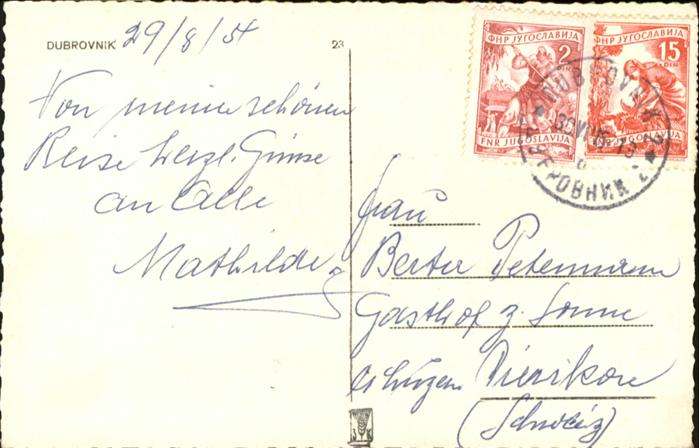 DUBROVNIK 29/8/54
23
Von meiner schönen
Reise herzl. Grüsse
an Alle
Mathilde
ФНР ЈУГОСЛАВИЈА
2
DIN
FNR JUGOSLAVIJA
ФНР ЈУГОСЛАВИЈА
15
DIN
FNR JUGOSLAVIJA
DUBROVNIK 2
ДУБРОВНИК 2
Frau
Berta Petermann
Gasthof z. Sonne
Dierikon
(Schweiz)